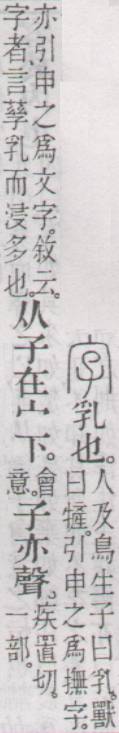 字乳也。人及鳥生子曰乳。獸
曰㹌。引申之爲撫字。
亦引申之爲文字。敘云。
字者、言孳乳而浸多也。
从子在宀下。會意。子亦聲。疾置切。一部。